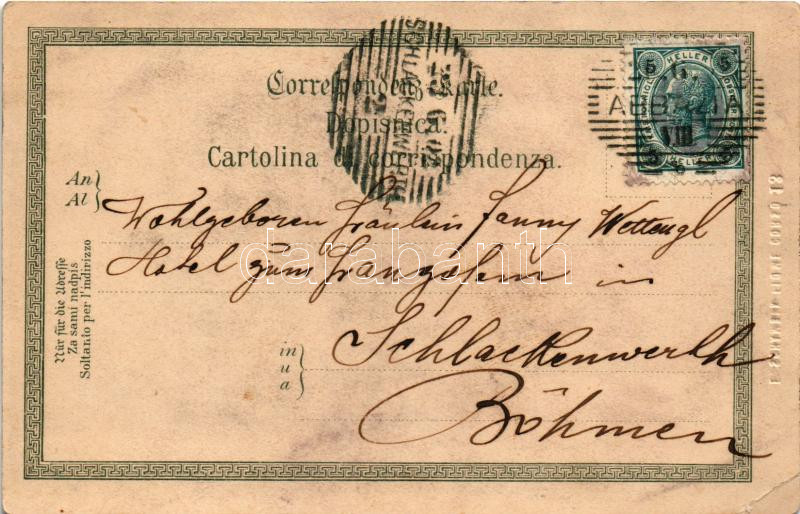 Correspondenz-Karte.
Dopisnica.
Cartolina di corrispondenza.
SCHLACKENWERTH
5 HELLER 5
ABBAZIA
VIII
An
Al
Wohlgeboren Fräulein Fanny Wettengl
Hotel zum Franzosen in
in
u
a
Schlackenwerth
Böhmen
Nur für die Adresse
Za sami nadpis
Soltanto per l'indirizzo
darabanth